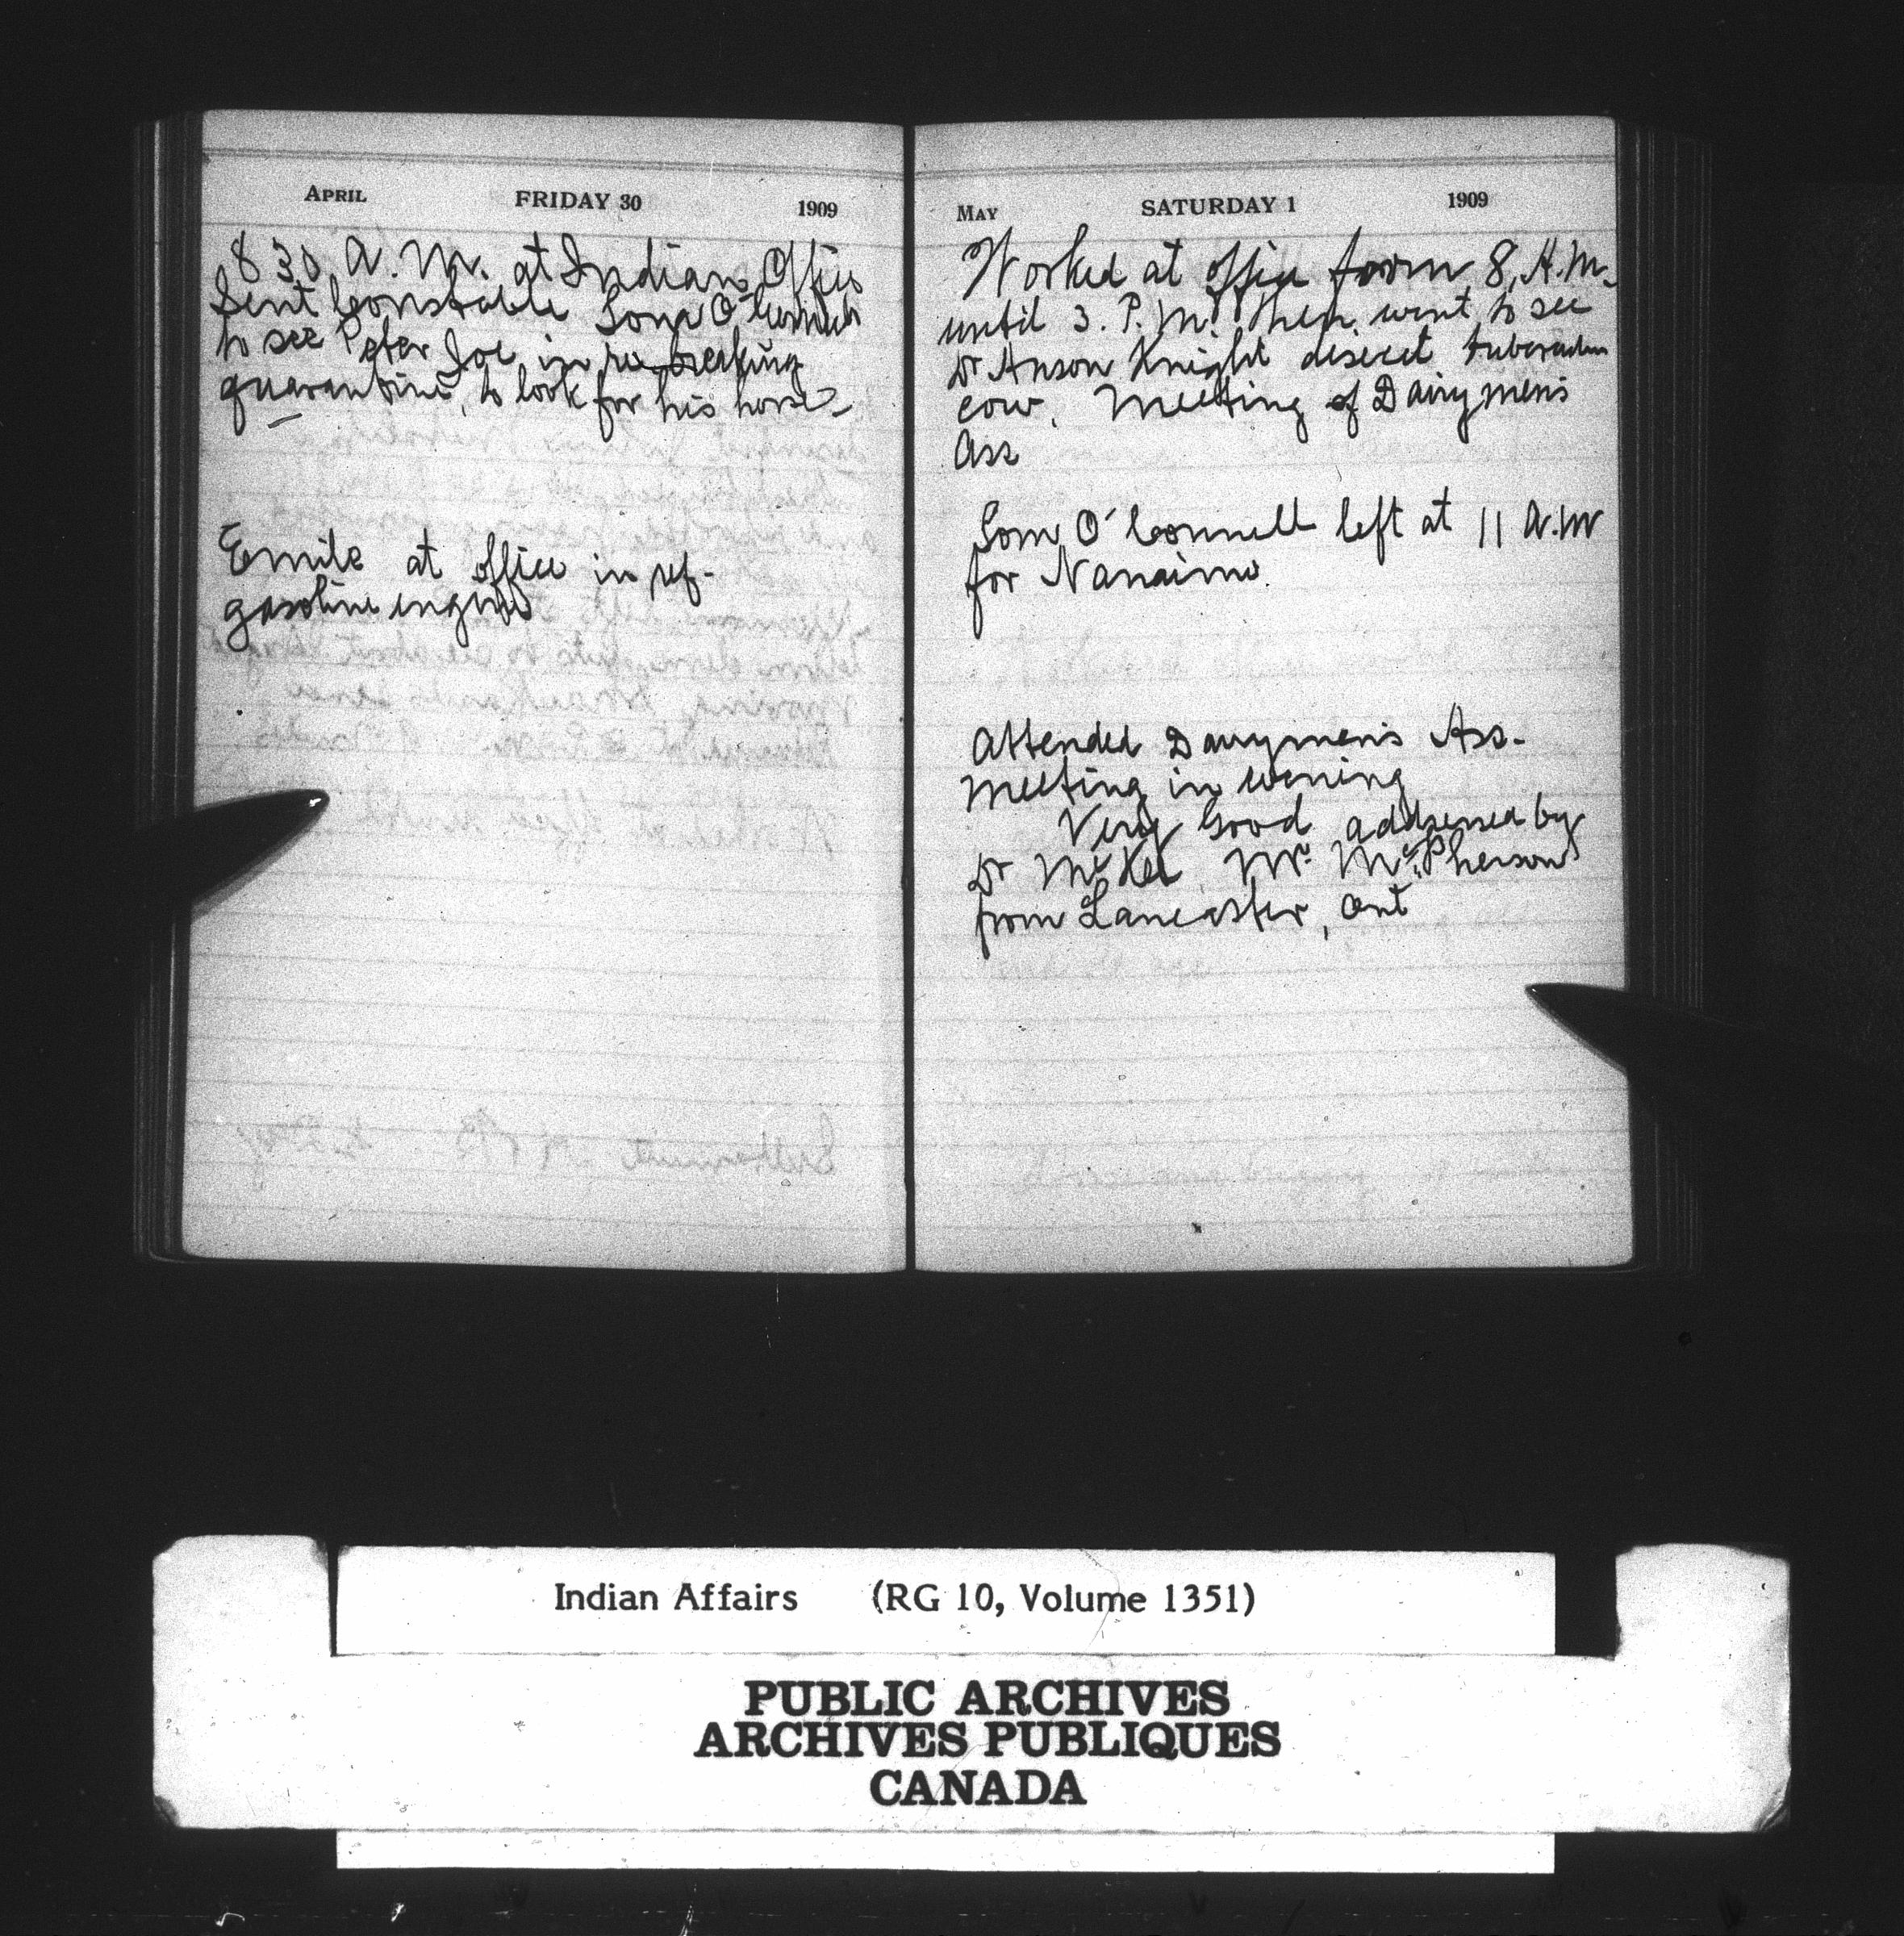 APRIL FRIDAY 30 1909
8 30 A. M. at Indian Office
Sent Constable Tom O'Connell
to see Peter Joe in re breaking
quarantine, to look for his horse
Emile at office in ref-
gasoline engine
MAY SATURDAY 1 1909
Worked at office form 8, A.M.
until 3. P.M. then went to see
Dr Anson Knight disect tubercular
cow. Meeting of Dairymen's
Ass
Tom O'Connell left at 11 A.M
for Nanaimo.
Attended Dairymen's Ass-
meeting in evening
Very Good addressed by
Dr McKee Mr. McPherson
from Lancaster, Ont
Indian Affairs (RG 10, Volume 1351)
PUBLIC ARCHIVES
ARCHIVES PUBLIQUES
CANADA